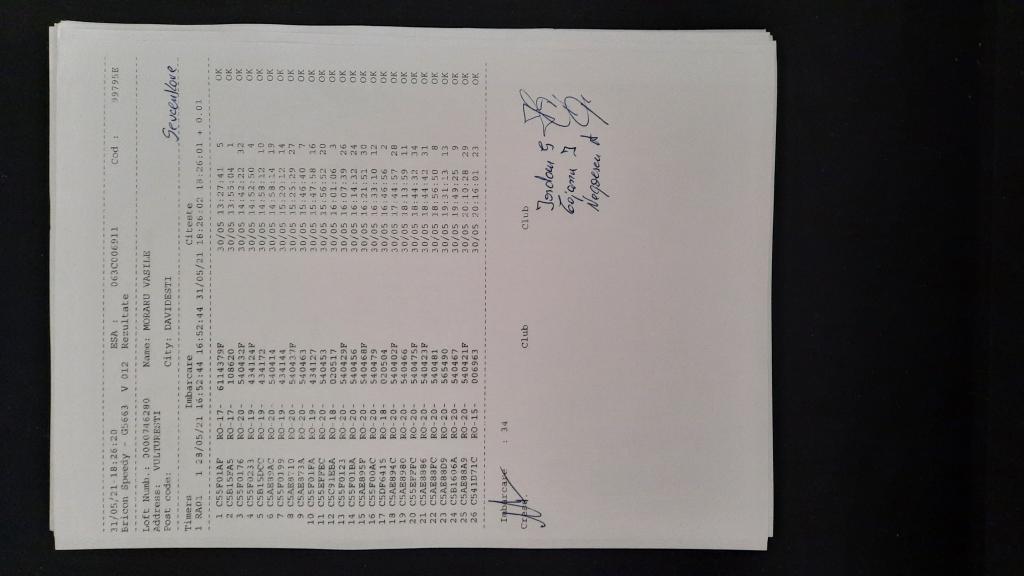 31/05/21-18:26:20 ESA : 063C006911 Cod : 99795E
Bricon Speedy - G5663 V 012 Rezultate
Loft Numb.: 0000746280 Name: MORARU VASILE
Address: VULTURESTI
Post code: City: DAVIDESTI
Timers Imbarcare Citeste
1 RA01 1 28/05/21 16:52:44 16:52:44 31/05/21 18:26:02 18:26:01 + 0.01
1 C55F01AF RO-17- 6114379F 30/05 13:27:41 5 OK
2 C5B15FA5 RO-17- 108620 30/05 13:55:04 1 OK
3 C55F0176 RO-20- 540432F 30/05 14:42:22 32 OK
4 C55F0233 RO-19- 434124F 30/05 14:52:50 4 OK
5 C5B15DCC RO-19- 434172 30/05 14:58:12 10 OK
6 C5AE89AC RO-20- 540414 30/05 14:58:14 19 OK
7 C55F0199 RO-19- 434144 30/05 15:20:12 14 OK
8 C5AE8710 RO-20- 540437F 30/05 15:25:29 27 OK
9 C5AE873A RO-20- 540463 30/05 15:46:40 7 OK
10 C55F01FA RO-19- 434127 30/05 15:47:58 16 OK
11 C55EFFEC RO-20- 540453 30/05 15:56:52 20 OK
12 C5C91EBA RO-18- 020517 30/05 16:01:06 3 OK
13 C55F0123 RO-20- 540429F 30/05 16:07:39 26 OK
14 C55F01BA RO-20- 540456 30/05 16:14:32 24 OK
15 C5AE895F RO-20- 540468F 30/05 16:21:51 30 OK
16 C55F00AC RO-20- 540479 30/05 16:33:10 12 OK
17 C5DF6415 RO-18- 020504 30/05 16:46:56 2 OK
18 C5AE894C RO-20- 540402F 30/05 17:44:57 28 OK
19 C5AE8980 RO-20- 540466 30/05 18:13:59 11 OK
20 C55EFFFC RO-20- 540475F 30/05 18:44:32 34 OK
21 C5AE8886 RO-20- 540423F 30/05 18:44:42 31 OK
22 C5AE88FC RO-20- 540481 30/05 18:56:50 8 OK
23 C5AE88D9 RO-20- 565490 30/05 19:11:13 13 OK
24 C5B1606A RO-20- 540467 30/05 19:49:25 9 OK
25 C5AE88A9 RO-20- 540421F 30/05 20:10:28 29 OK
26 C541D71C RO-15- 006963 30/05 20:16:01 23 OK
Imbarcare : 34
Club Club
Iordan G